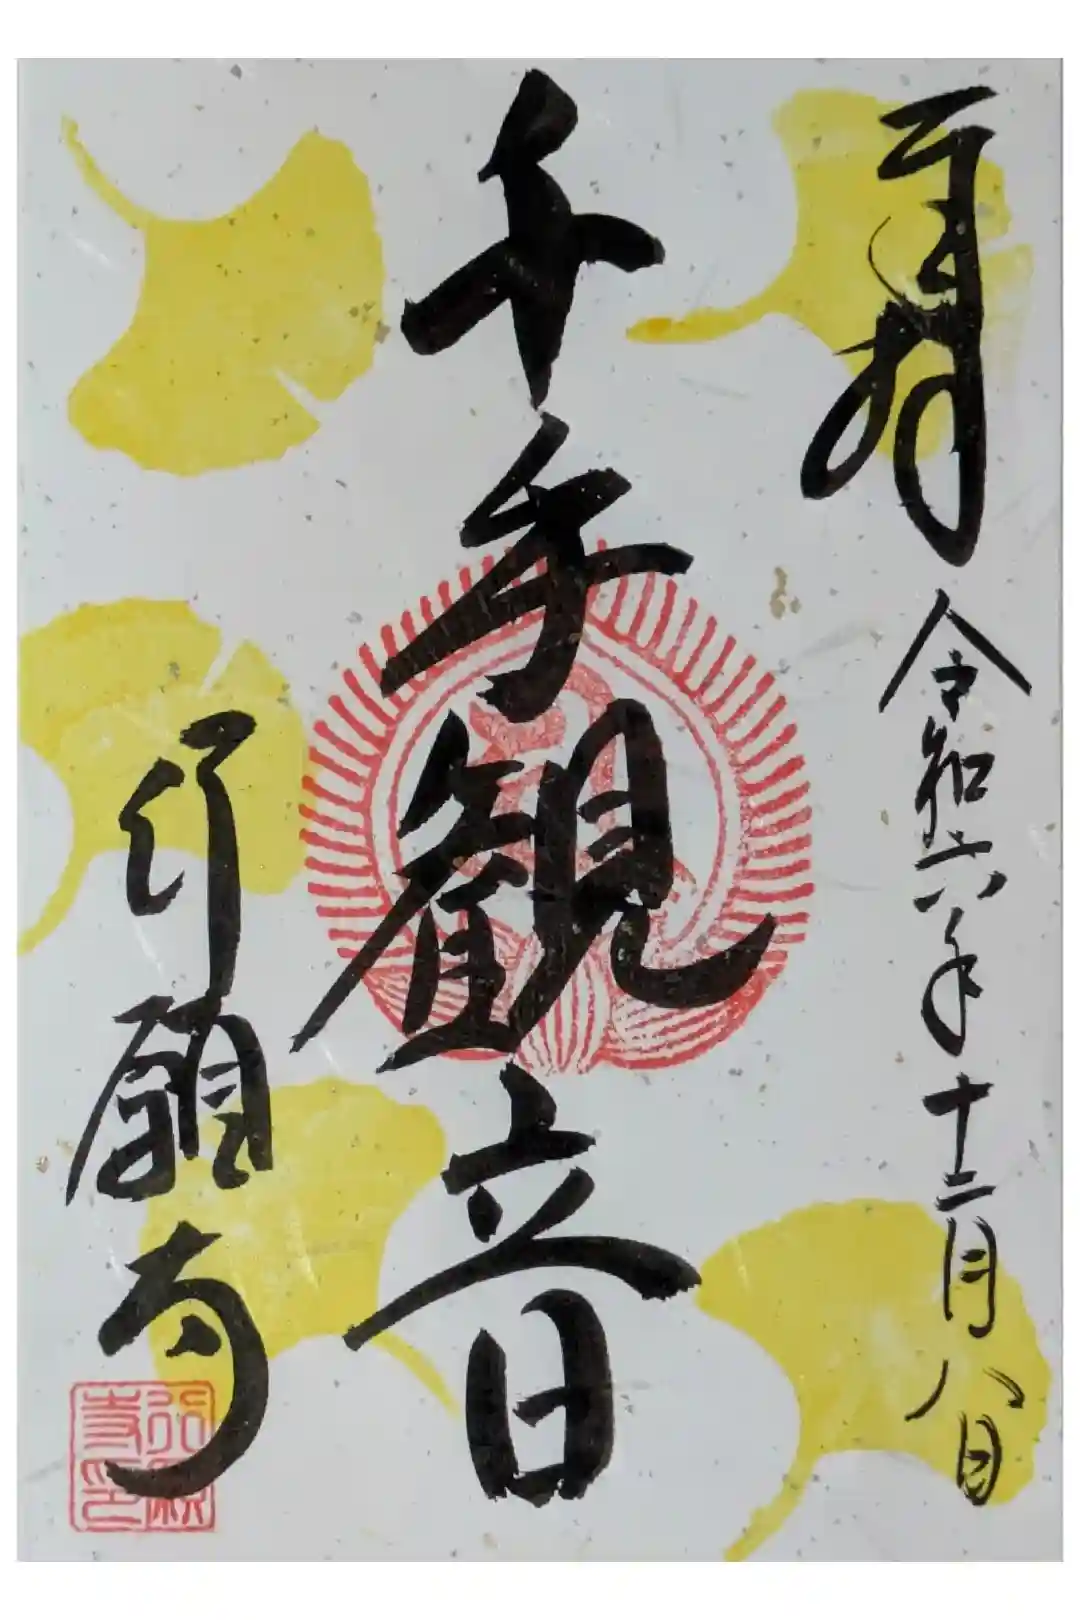 奉拝 令和六年十二月八日
千手観音
行願寺
行願寺印